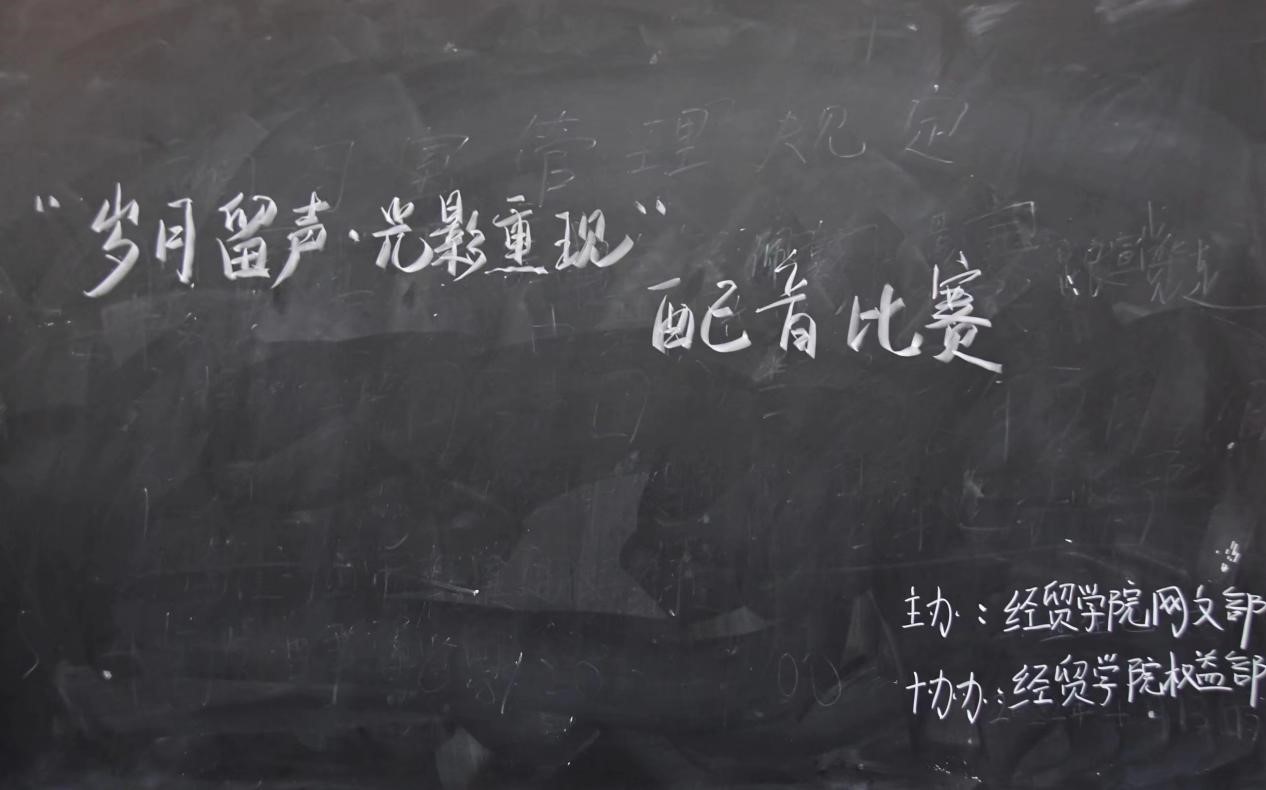 管理规定
“岁月留声·光影重现”
配音比赛
主办：经贸学院网文部
协办：经贸学院权益部